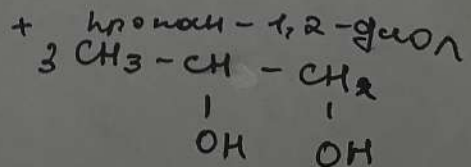 + пропан-1,2-диол
3 CH3 - CH - CH2
OH OH